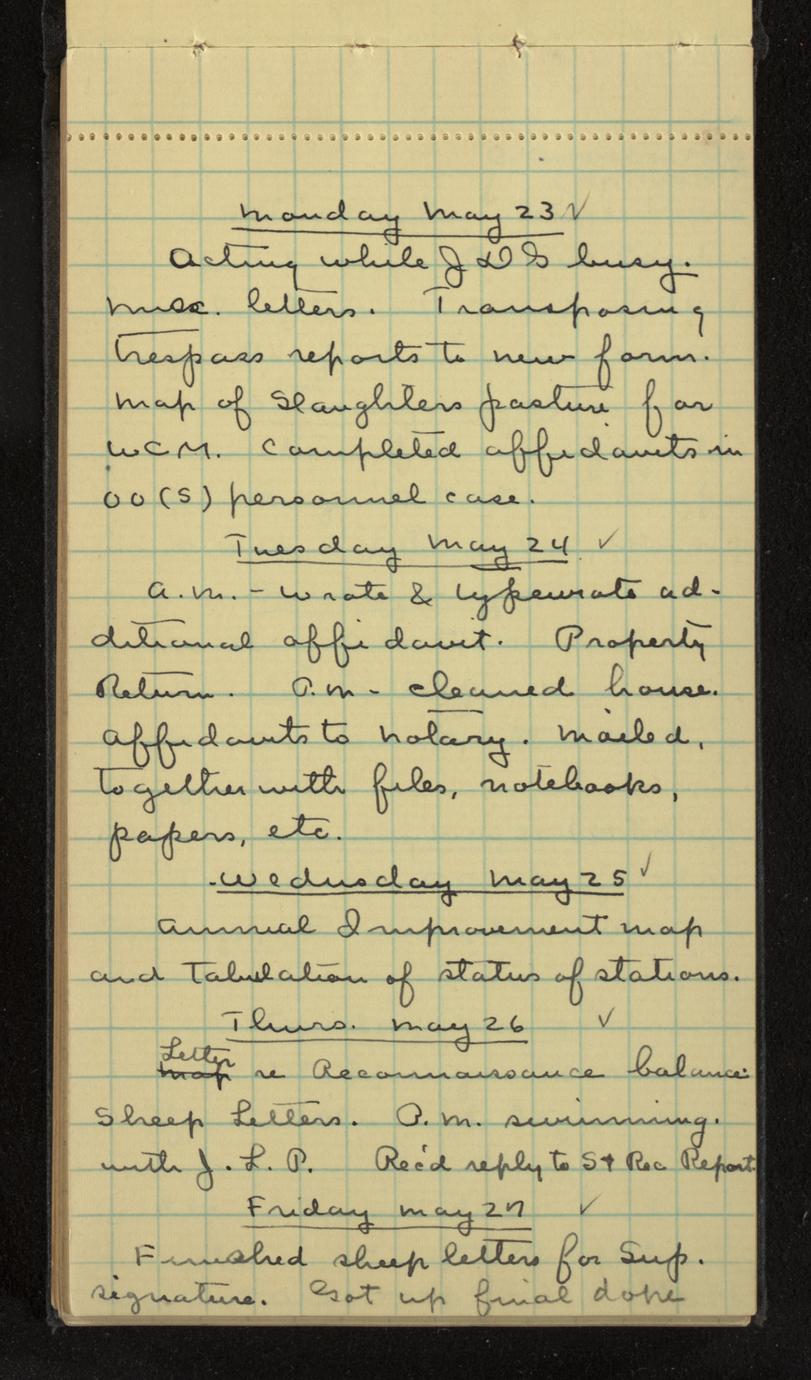 Monday May 23 ✓
Acting while J D G busy.
Misc. letters. Transposing
trespass reports to new form.
Map of Slaughters pasture for
WCM. Completed affidavits in
OO(S) personnel case.
Tuesday May 24 ✓
A.M. - Wrote & typewrote ad-
ditional affidavit. Property
Return. P.M - cleaned house.
Affidavits to notary. Mailed,
together with files, notebooks,
papers, etc.
Wednesday May 25 ✓
Annual Improvement map
and tabulation of status of stations.
Thurs. May 26 ✓
Letter
Map re Reconnaissance balance
Sheep Letters. P.M. swimming.
with J. L. P. Rec'd reply to St Rec Report
Friday May 27 ✓
Finished sheep letters for Sup.
signature. Got up final dope